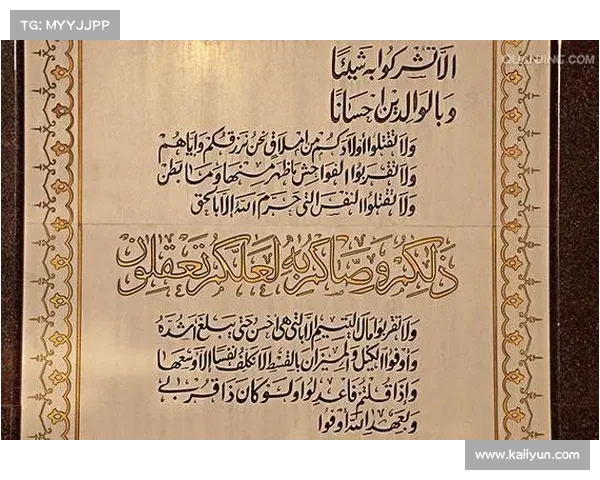 TG: MYYJJPP
QUANJING.COM
الا تشركوا به شيئا
وبالوالدين احسانا
ولا تقتلوا اولادكم من املاق نحن نرزقكم واياهم
ولا تقربوا الفواحش ما ظهر منها وما بطن
ولا تقتلوا النفس التي حرم الله الا بالحق
ذلكم وصاكم به لعلكم تعقلون
ولا تقربوا مال اليتيم الا بالتي هي احسن حتى يبلغ اشده
واوفوا الكيل والميزان بالقسط لا نكلف نفسا الا وسعها
واذا قلتم فاعدلوا ولو كان ذا قربى
وبعهد الله اوفوا
www.kaiiyun.com